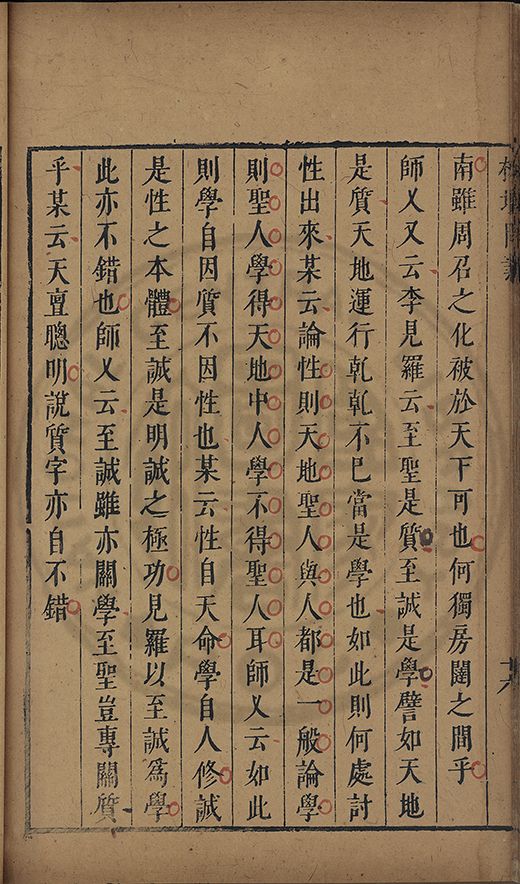 南雖周召之化被於天下可也何獨房闥之間乎
師乂又云李見羅云至聖是質至誠是學譬如天地
是質天地運行乾乾不已當是學也如此則何處討
性出來某云論性則天地聖人與人都是一般論學
則聖人學得天地中人學不得聖人耳師乂云如此
則學自因質不因性也某云性自天命學自人修誠
是性之本體至誠是明誠之極功見羅以至誠為學
此亦不錯也師乂云至誠雖亦關學至聖豈專關質
乎某云天亶聰明說質字亦自不錯